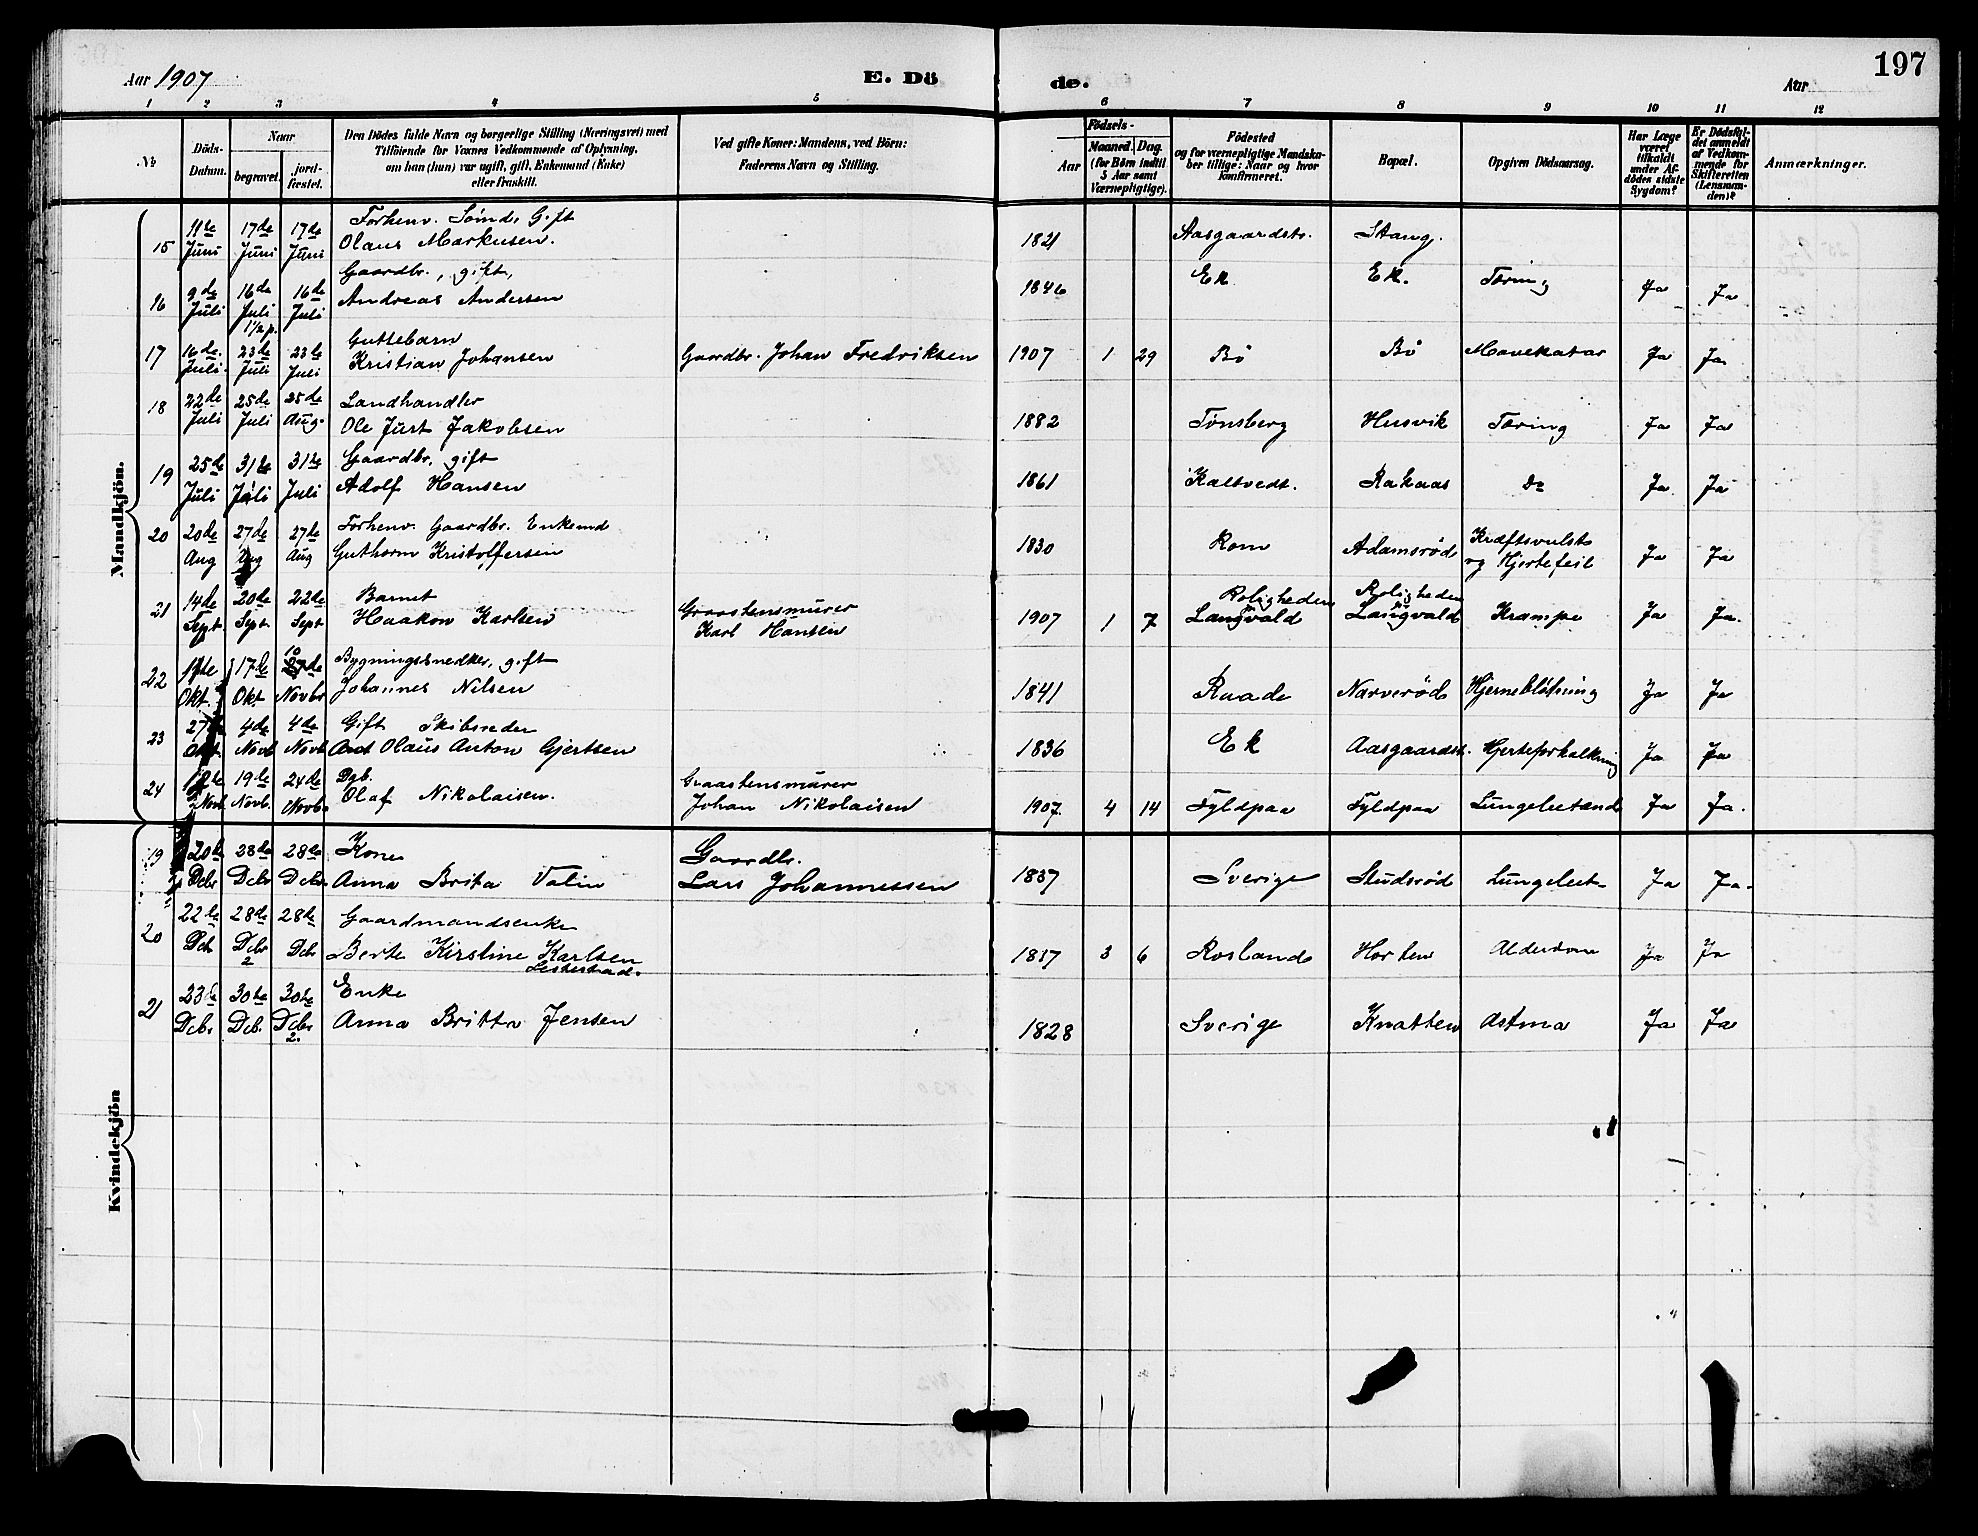 197
Aar 1907
E. Dö de.
Aar
1 2 3 4 5 6 7 8 9 10 11 12
No
Döds-Datum.
Naar
begravet.
jord-fæstet.
Den Dödes fulde Navn og borgerlige Stilling (Næringsvei) med
Tilföiende for Voxnes Vedkommende af Oplysning,
om han (hun) var ugift, gift, Enkemand (Enke)
eller fraskilt.
Ved gifte Koner: Mandens, ved Börn:
Faderens Navn og Stilling.
Födsels-
Aar
Maaned. Dag.
(for Börn indtil
5 Aar samt
Værnepligtige).
Födested
og for værnepligtige Mandska-
ber tillige: Naar og hvor
konfirmeret.
Bopæl.
Opgiven Dödsaarsag.
Har Læge
været
tilkaldt
under Af-
dödes sidste
Sygdom?
Er Dödsfal-
det anmeldt
af Vedkom-
mende for
Skifteretten
(Lensman-
den)?
Anmærkninger.
Mandkjön.
15 11te Juni 17de Juni 17de Juni Forhenv. Sømd. Gift
Olaus Markusen. 1821 Aasgaardstr. Stang.
16 9de Juli 16de Juli 16de Juli Gaardbr., gift,
Andreas Andersen 1846 Ek Ek. Tæring Ja Ja
17 16de Juli 23de Juli 23de Juli Guttebarn
Kristian Johansen Gaardbr. Johan Fredriksen 1907 1 29 Bø Bø Mavekatar Ja Ja
18 22de Juli 25de Juli 25de Aug. Landhandler
Ole Just Jakobsen 1882 Tønsberg Husvik Tæring Ja Ja
19 25de Juli 31te Juli 31te Juli Gaardbr. gift
Adolf Hansen 1861 Kaltvedt. Rakaas Do Ja Ja
20 20de Aug 27de Aug 27de Aug Forhenv. Gaardbr. Enkemd
Guthorm Kristoffersen 1830 Rom Adamsrød Kræftsvulst
og Hjertefeil Ja Ja
21 14de Sept 20de Sept. 22de Sept Barnet
Haakon Karlsen Graastensmurer
Karl Hansen 1907 1 7 Roligheden
Langvald Roligheden
Langvald Krampe Ja Ja.
22 Okt. 17de Okt 10 Novbr Bygningssnedker, gift
Johannes Nilsen 1841 Raade Narverød Hjerneblødning Ja Ja
23 27 Okt. 4de Novb 4de Novb. Gift Skibsreder
Olaus Anton Gjertsen 1836 Ek Aasgaardst. Hjerteforkalkning Ja Ja
24 Novb. 19de Novb. 24de Novb. Dgb.
Olaf Nikolaisen. Graastensmurer
Johan Nikolaisen 1907. 4 14 Fyldpaa Fyldpaa Lungebetænd Ja Ja.
Kvindekjön
19 20de Dcbr 28de Dcbr 28de Dcbr. Kone
Anna Brita Valin Gaardbr.
Lars Johannessen 1837 Sverige Studsrød Lungebet- Ja Ja.
20 22de Dcb 28de Dcbr 28de Dcbr Gaardmandsenke
Berte Kirstine Karlsen 1837 3 6 Rosland Horten Alderdom Ja Ja
21 23de Dcbr 30te Dcb. 30te Dcbr Enke
Anna Britta Jensen 1828 Sverige Knatten Astma Ja Ja